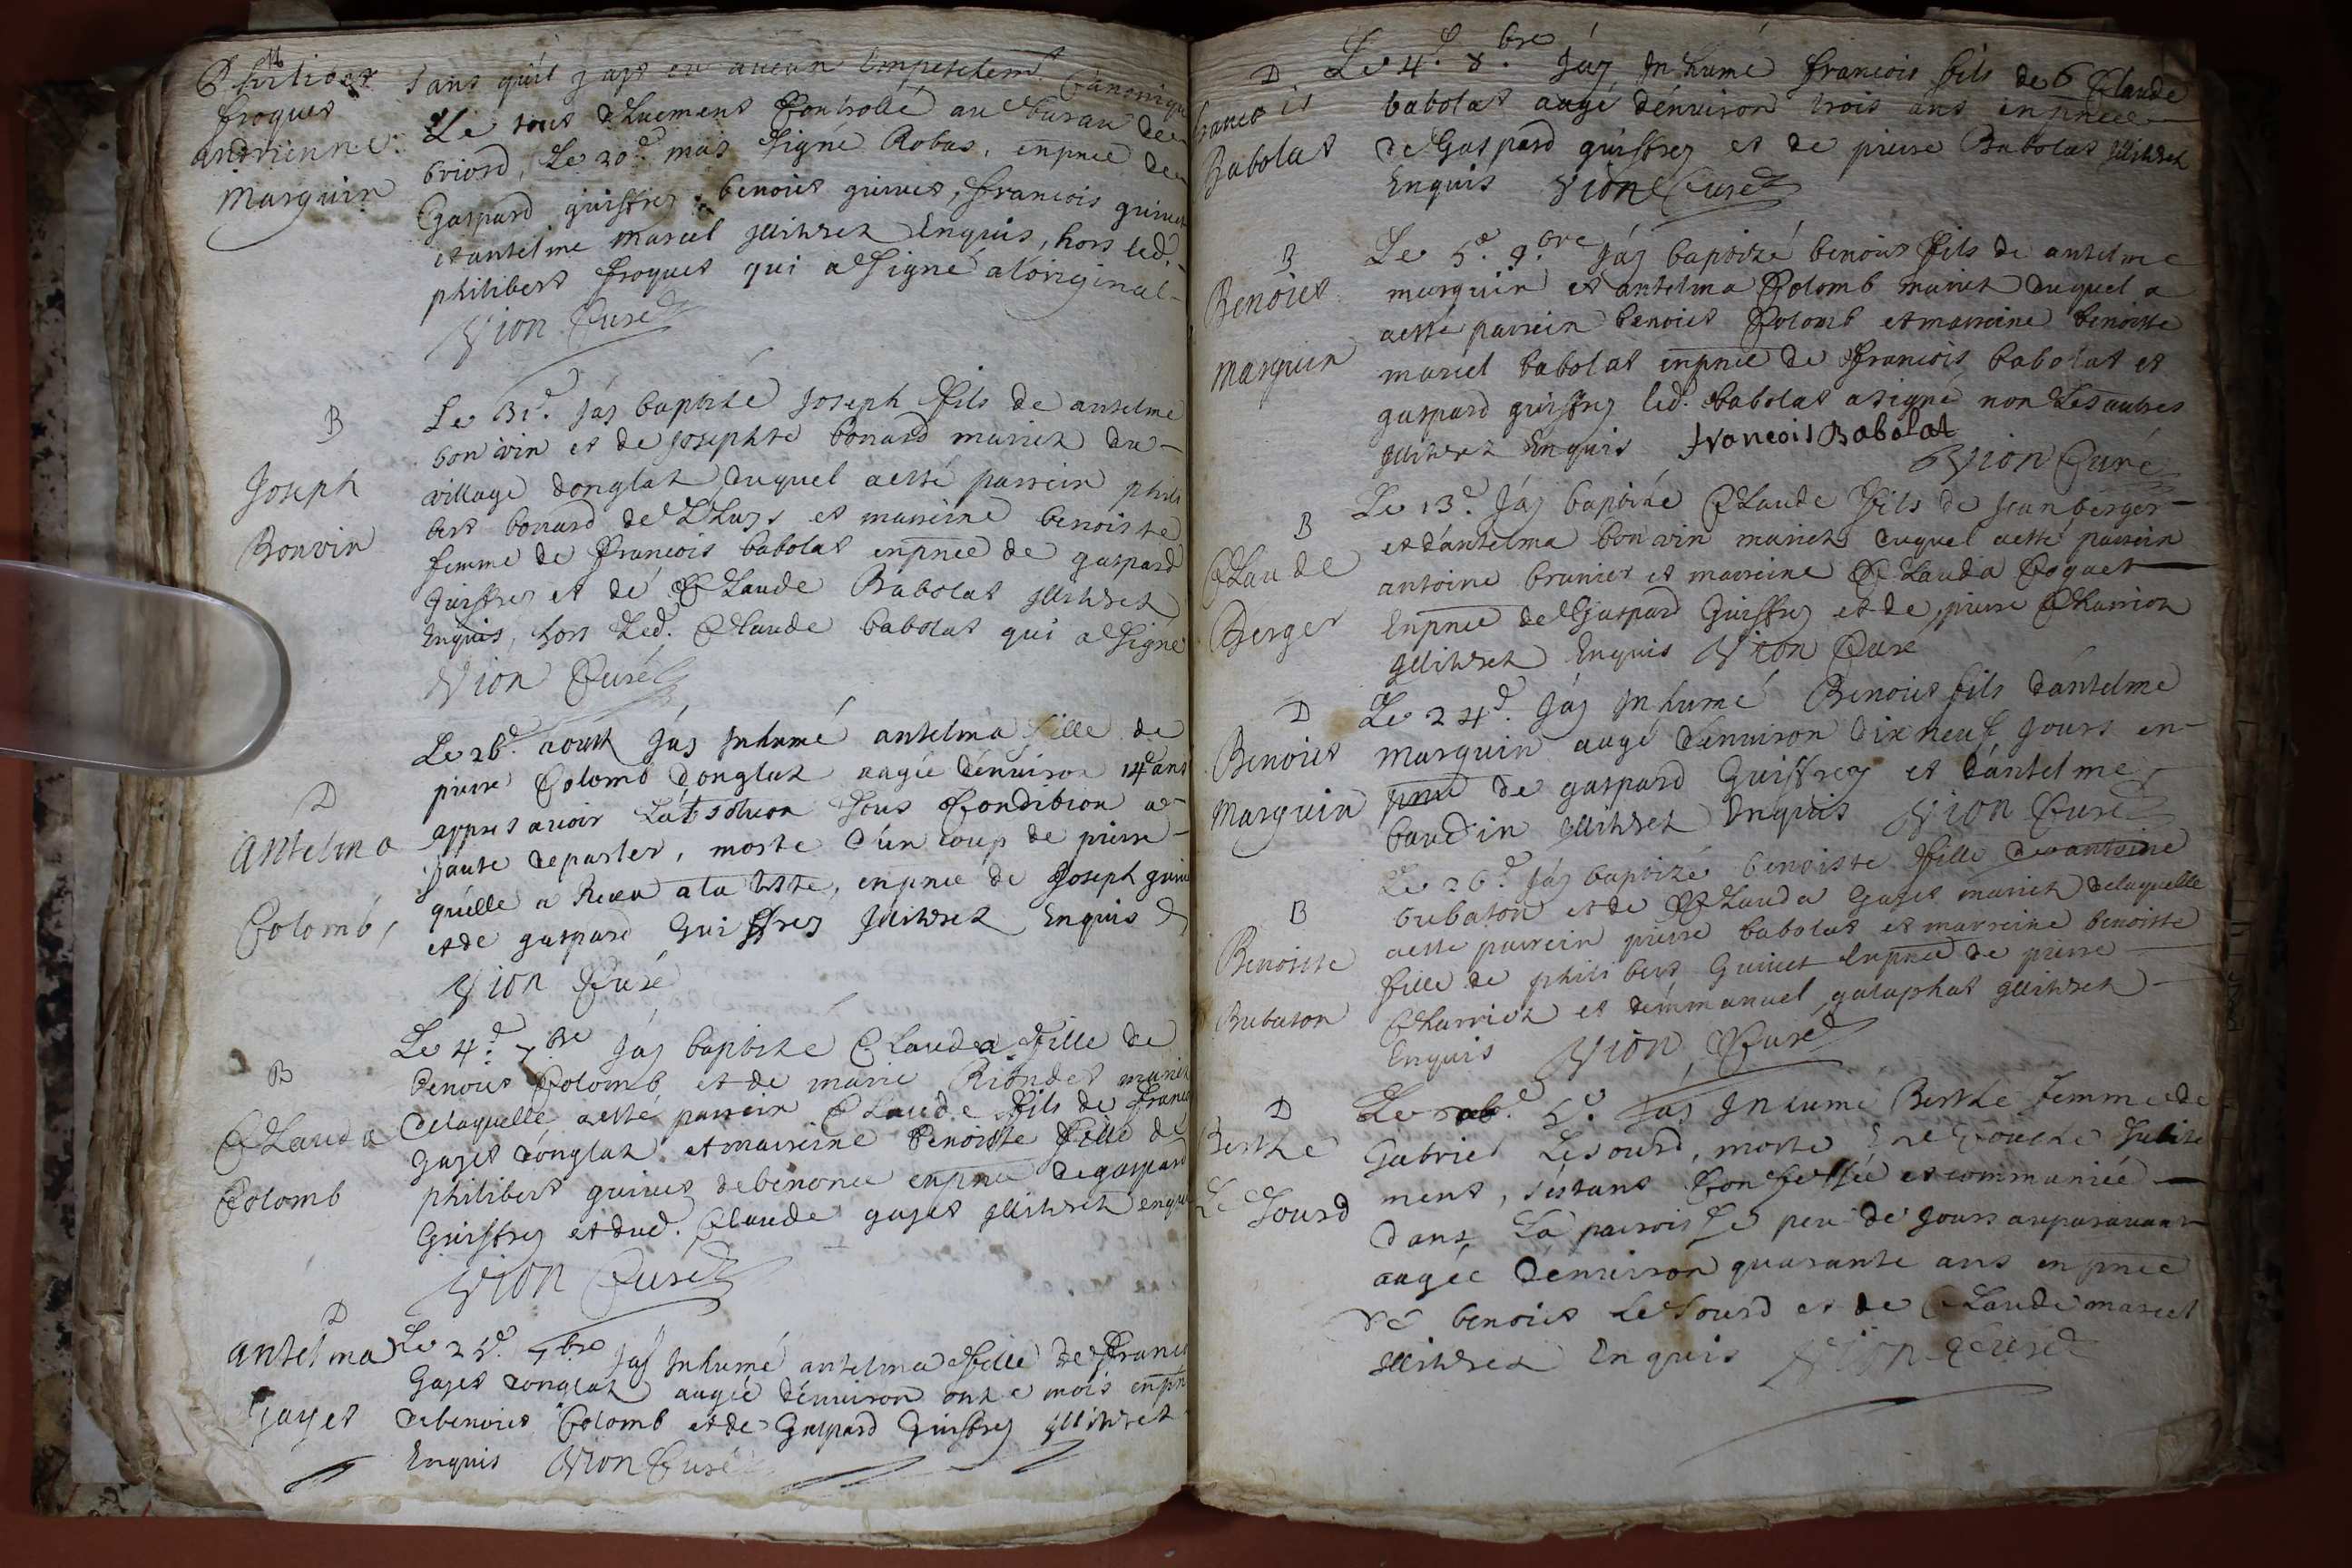 M
Philiber
froquet
andrienne
Marguin
sans quil j aye eu aucun Empeschemt Canonique
Le tout dhuement Controllé au burau de
briord, Le 20e mars signé Robas, enpnce de
Gaspard guiffrey, benoict guinet, francois guinet
et antelme marcel jllitrez Enquis, hors led.
philibert froquet qui a signé aloriginal
Vion Curé
B
Joseph
Bonvin
Le 31e. jáy baptizé Joseph fils de antelme
bonvin et de josephte bonard mariez du
village donglaz duquel a esté parrein phili
bert bonard de Lhuys et marreine benoiste
femme de francois babolat enpnce de gaspard
guiffrey et de Claude Babolat jllitrez
Enquis, hors Led. Claude babolat qui a signé
Vion Curé
D
antelma
Colomb
Le 26e. aoust jáy Inhumé antelma fille de
pierre Colomb donglaz augée dénuiron 14 ans
appres auoir Lábsoluon sous Condition a
faute de parler, morte dún coup de pierre
quélle a Receu a la teste, enpnce de Joseph guinet
et de gaspard Guiffrey jllitrez Enquis
Vion Curé
B
Clauda
Colomb
Le 4e. 7bre jáy baptizé Clauda fille de
benoict Colomb et de marie Riondet mariez
delaquelle a esté parrein Claude fils de francois
gayet donglaz et marreine benoiste fille de
philibert guinet de benonce enpnce de gaspard
Guiffrey et dud. Claude gayet jllitrez enquis
Vion Curé
D
antelma
Gayet
Le 25e. 7bre jáy Inhumé antelma fille de francois
Gayet donglaz augée dénuiron onze mois enpnce
de benoict Colomb et de Gaspard Guiffrey jllitrez
Enquis Vion Curé
D
francois
Babolat
Le 4e. 8bre jáy Inhumé francois fils de Claude
babolat augé dénuiron trois ans enpnce
de Gaspard guiffrey et de pierre Babolat jllitrez
Enquis Vion Curé
B
Benoict
marguin
Le 5e. 9bre jáy baptizé benoict fils de antelme
marguin et antelma Colomb mariez duquel a
a esté parrein benoict Colomb et marreine benoiste
marcel babolat enpnce de francois babolat et
gaspard guiffrey led. babolat a signé non Les autres
jllitrez Enquis francois Babolat
Vion Curé
B
Claude
Berger
Le 13e. jáy baptizé Claude fils de jean berger
et dántelma bonvin mariez duquel a esté parrein
antoine brunier et marreine Clauda Coquet
Enpnce de Gaspard Guiffrey et de pierre Charriez
jllitrez Enquis Vion Curé
D
Benoict
Marguin
Le 24e. jáy Inhumé Benoict fils dántelme
Marguin augé dénuiron dix neuf jours en
pnce de gaspard Guiffrey et dántelme
baudin jllitrez Enquis Vion Curé
B
Benoiste
Bubaton
Le 26e. jáy baptizé benoiste fille de antoine
bubaton et de Clauda Gayet mariez de laquelle
a esté parrein pierre babolat et marreine benoiste
fille de philibert Guinet Enpnce de pierre
Charriez et démmanuel galaphat jllitrez
Enquis Vion Curé
D
Berthe
Le Sourd
5e. jáy Inhumé Berthe femme de
Gabriel Lesourd, morte En Couche subite
ment, séstant Confessée et communiée
dans La parroisse peu de jours auparauant
augée dénuiron quarante ans enpnce
de benoict Le Sourd et de Claude marcel
jllitrez Enquis Vion Curé